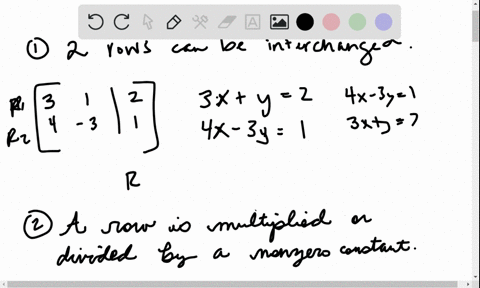 ① 2 rows can be interchanged.
R1 [ 3 1 | 2 ] 3x + y = 2 4x-3y=1
R2 [ 4 -3 | 1 ] 4x - 3y = 1 3x+y=2
R
② A row is multiplied or
divided by a nonzero constant.